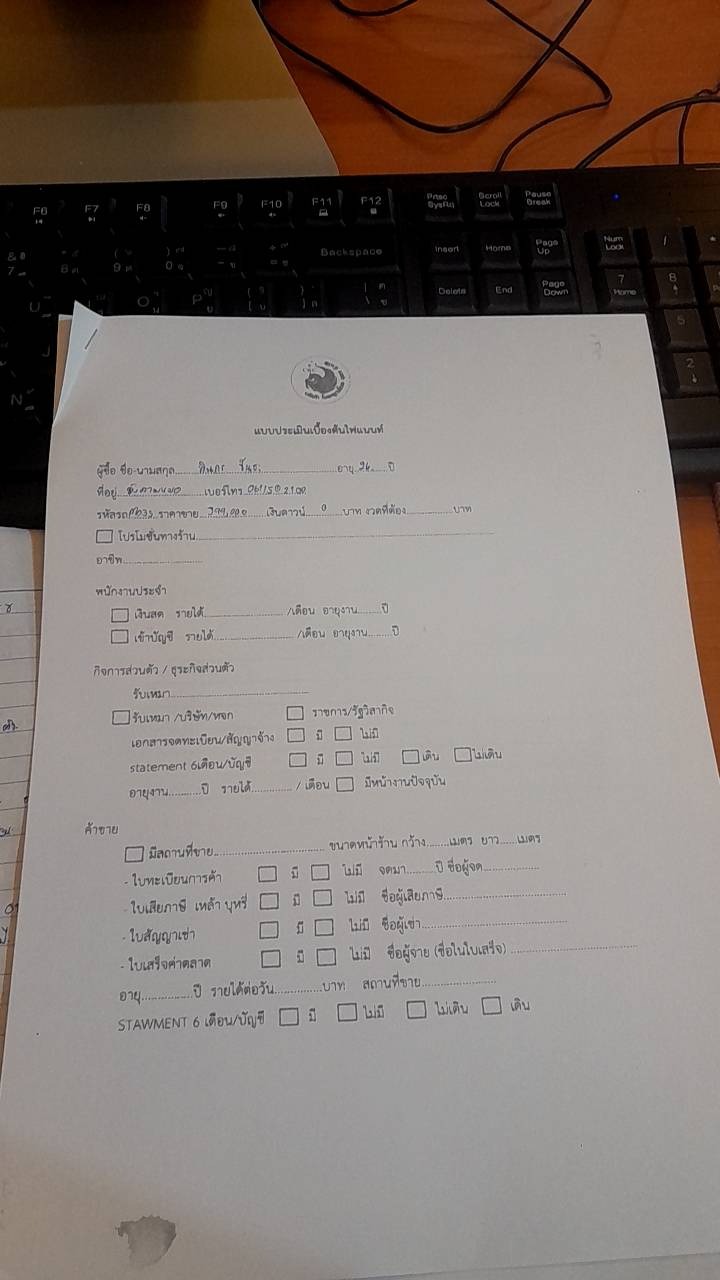 F6 F7 F8 F9 F10 F11 F12 Prtsc SysRq Scroll Lock Pause Break
Backspace Insert Home Page Up Num Lock /
Delete End Page Down 7 Home 8
5
2
แบบประเมินเบื้องต้นไฟแนนท์
ผู้ซื้อ ชื่อ-นามสกุล อายุ 26 ปี
ที่อยู่ เบอร์โทร
รหัสรถ ราคาขาย 399,000 เงินดาวน์ 0 บาท งวดที่ต้อง บาท
โปรโมชั่นทางร้าน
อาชีพ
พนักงานประจำ
เงินสด รายได้ /เดือน อายุงาน ปี
เข้าบัญชี รายได้ /เดือน อายุงาน ปี
กิจการส่วนตัว / ธุระกิจส่วนตัว
รับเหมา
รับเหมา /บริษัท/หจก ราชการ/รัฐวิสากิจ
เอกสารจดทะเบียน/สัญญาจ้าง มี ไม่มี
statement 6เดือน/บัญชี มี ไม่มี เดิน ไม่เดิน
อายุงาน ปี รายได้ / เดือน มีหน้างานปัจจุบัน
ค้าขาย
มีสถานที่ขาย ขนาดหน้าร้าน กว้าง เมตร ยาว เมตร
- ใบทะเบียนการค้า มี ไม่มี จดมา ปี ชื่อผู้จด
- ใบเสียภาษี เหล้า บุหรี่ มี ไม่มี ชื่อผู้เสียภาษี
- ใบสัญญาเช่า มี ไม่มี ชื่อผู้เช่า
- ใบเสร็จค่าตลาด มี ไม่มี ชื่อผู้จ่าย (ชื่อในใบเสร็จ)
อายุ ปี รายได้ต่อวัน บาท สถานที่ขาย
STAWMENT 6 เดือน/บัญชี มี ไม่มี ไม่เดิน เดิน